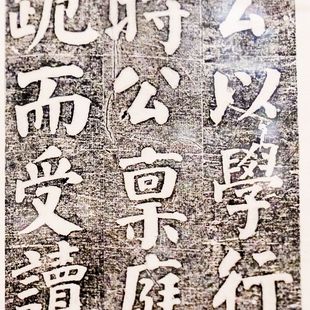 公以學行
時公稟庭
跪而受讀